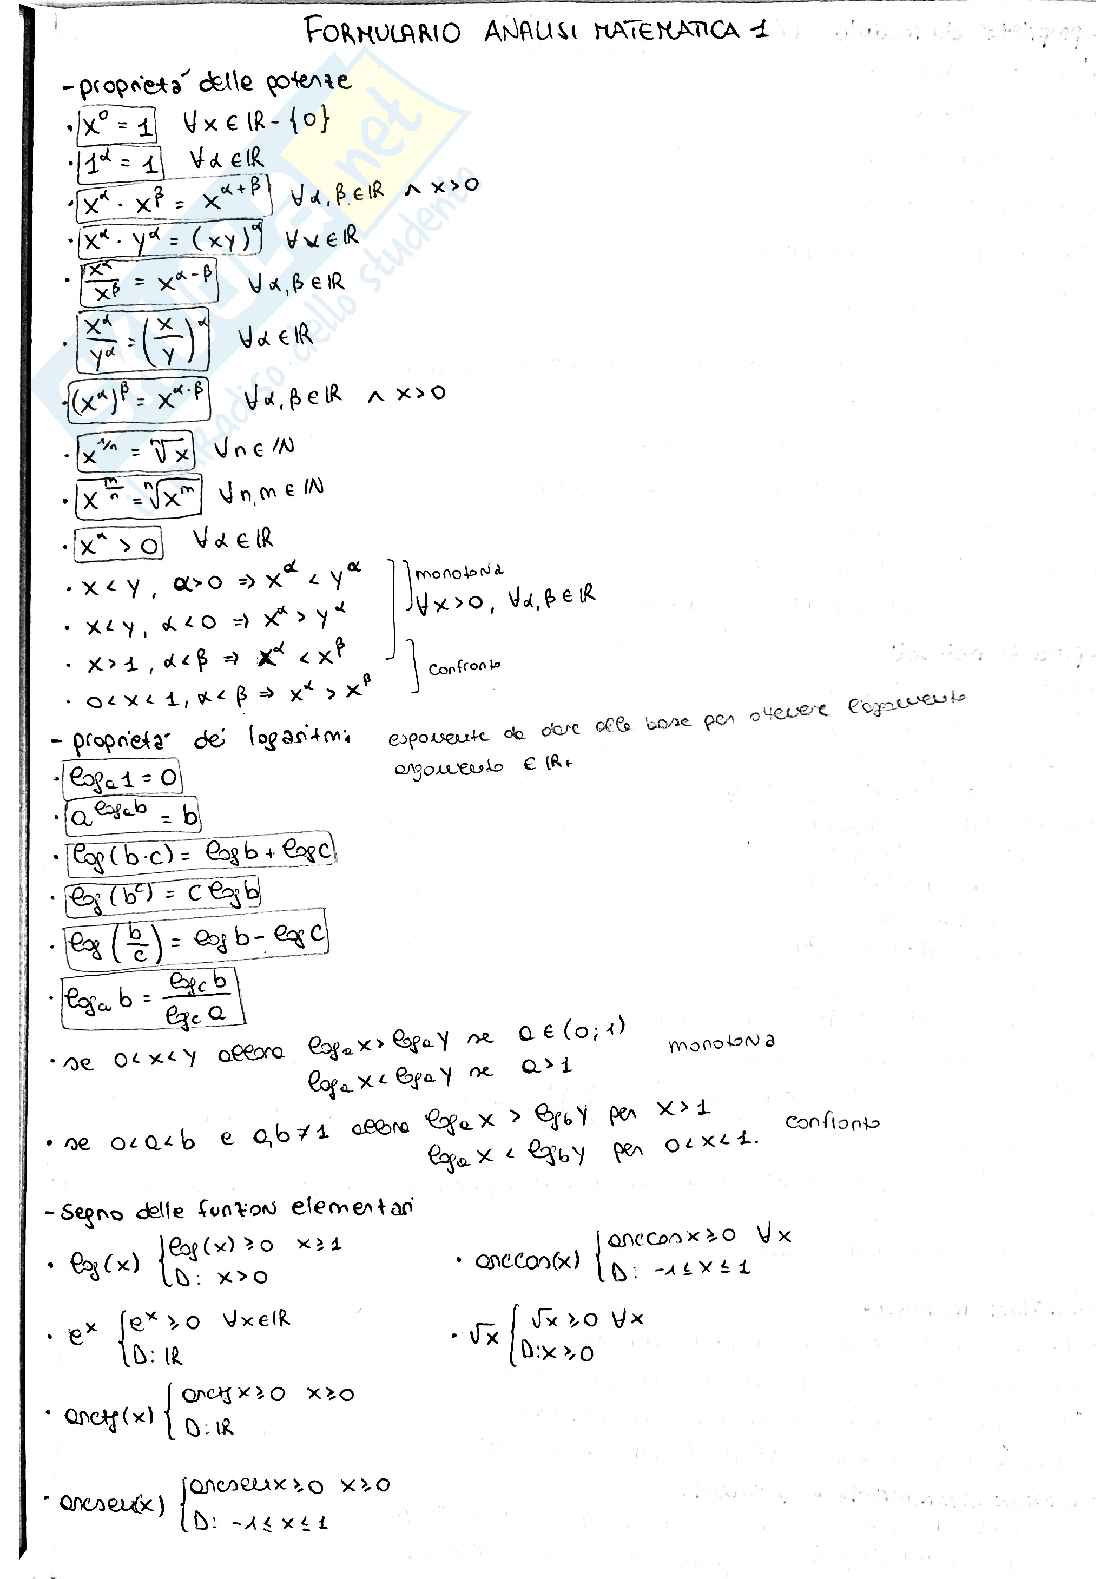 FORMULARIO ANALISI MATEMATICA 1
- proprietá delle potenze
· x^0 = 1 ∀x ∈ ℝ - {0}
· 1^α = 1 ∀α ∈ ℝ
· x^α · x^β = x^(α+β) ∀α, β ∈ ℝ ∧ x > 0
· x^α · y^α = (xy)^α ∀α ∈ ℝ
· x^α / x^β = x^(α-β) ∀α, β ∈ ℝ
· x^α / y^α = (x/y)^α ∀α ∈ ℝ
· (x^α)^β = x^(α·β) ∀α, β ∈ ℝ ∧ x > 0
· x^(1/n) = ⁿ√x ∀n ∈ ℕ
· x^(m/n) = ⁿ√x^m ∀n, m ∈ ℕ
· x^α > 0 ∀α ∈ ℝ
· x < y, α > 0 ⇒ x^α < y^α
· x < y, α < 0 ⇒ x^α > y^α
monotonia
∀x > 0, ∀α, β ∈ ℝ
· x > 1, α < β ⇒ x^α < x^β
· 0 < x < 1, α < β ⇒ x^α > x^β
confronto
- proprietá dei logaritmi esponente da dare alla base per ottenere l'argomento
argomento ∈ ℝ+
· log_a 1 = 0
· a^(log_a b) = b
· log(b·c) = log b + log c
· log(b^c) = c log b
· log(b/c) = log b - log c
· log_a b = log_c b / log_c a
· se 0 < x < y allora log_a x > log_a y se a ∈ (0; 1) monotonia
log_a x < log_a y se a > 1
· se 0 < a < b e a,b ≠ 1 allora log_a x > log_b y per x > 1 confronto
log_a x < log_b y per 0 < x < 1.
- segno delle funzioni elementari
· log(x) { log(x) ≥ 0 x ≥ 1
D: x > 0
· arccos(x) { arccos x ≥ 0 ∀x
D: -1 ≤ x ≤ 1
· e^x { e^x ≥ 0 ∀x ∈ ℝ
D: ℝ
· √x { √x ≥ 0 ∀x
D: x ≥ 0
· arctg(x) { arctg x ≥ 0 x ≥ 0
D: ℝ
· arcsen(x) { arcsen x ≥ 0 x ≥ 0
D: -1 ≤ x ≤ 1
.net
dello studente